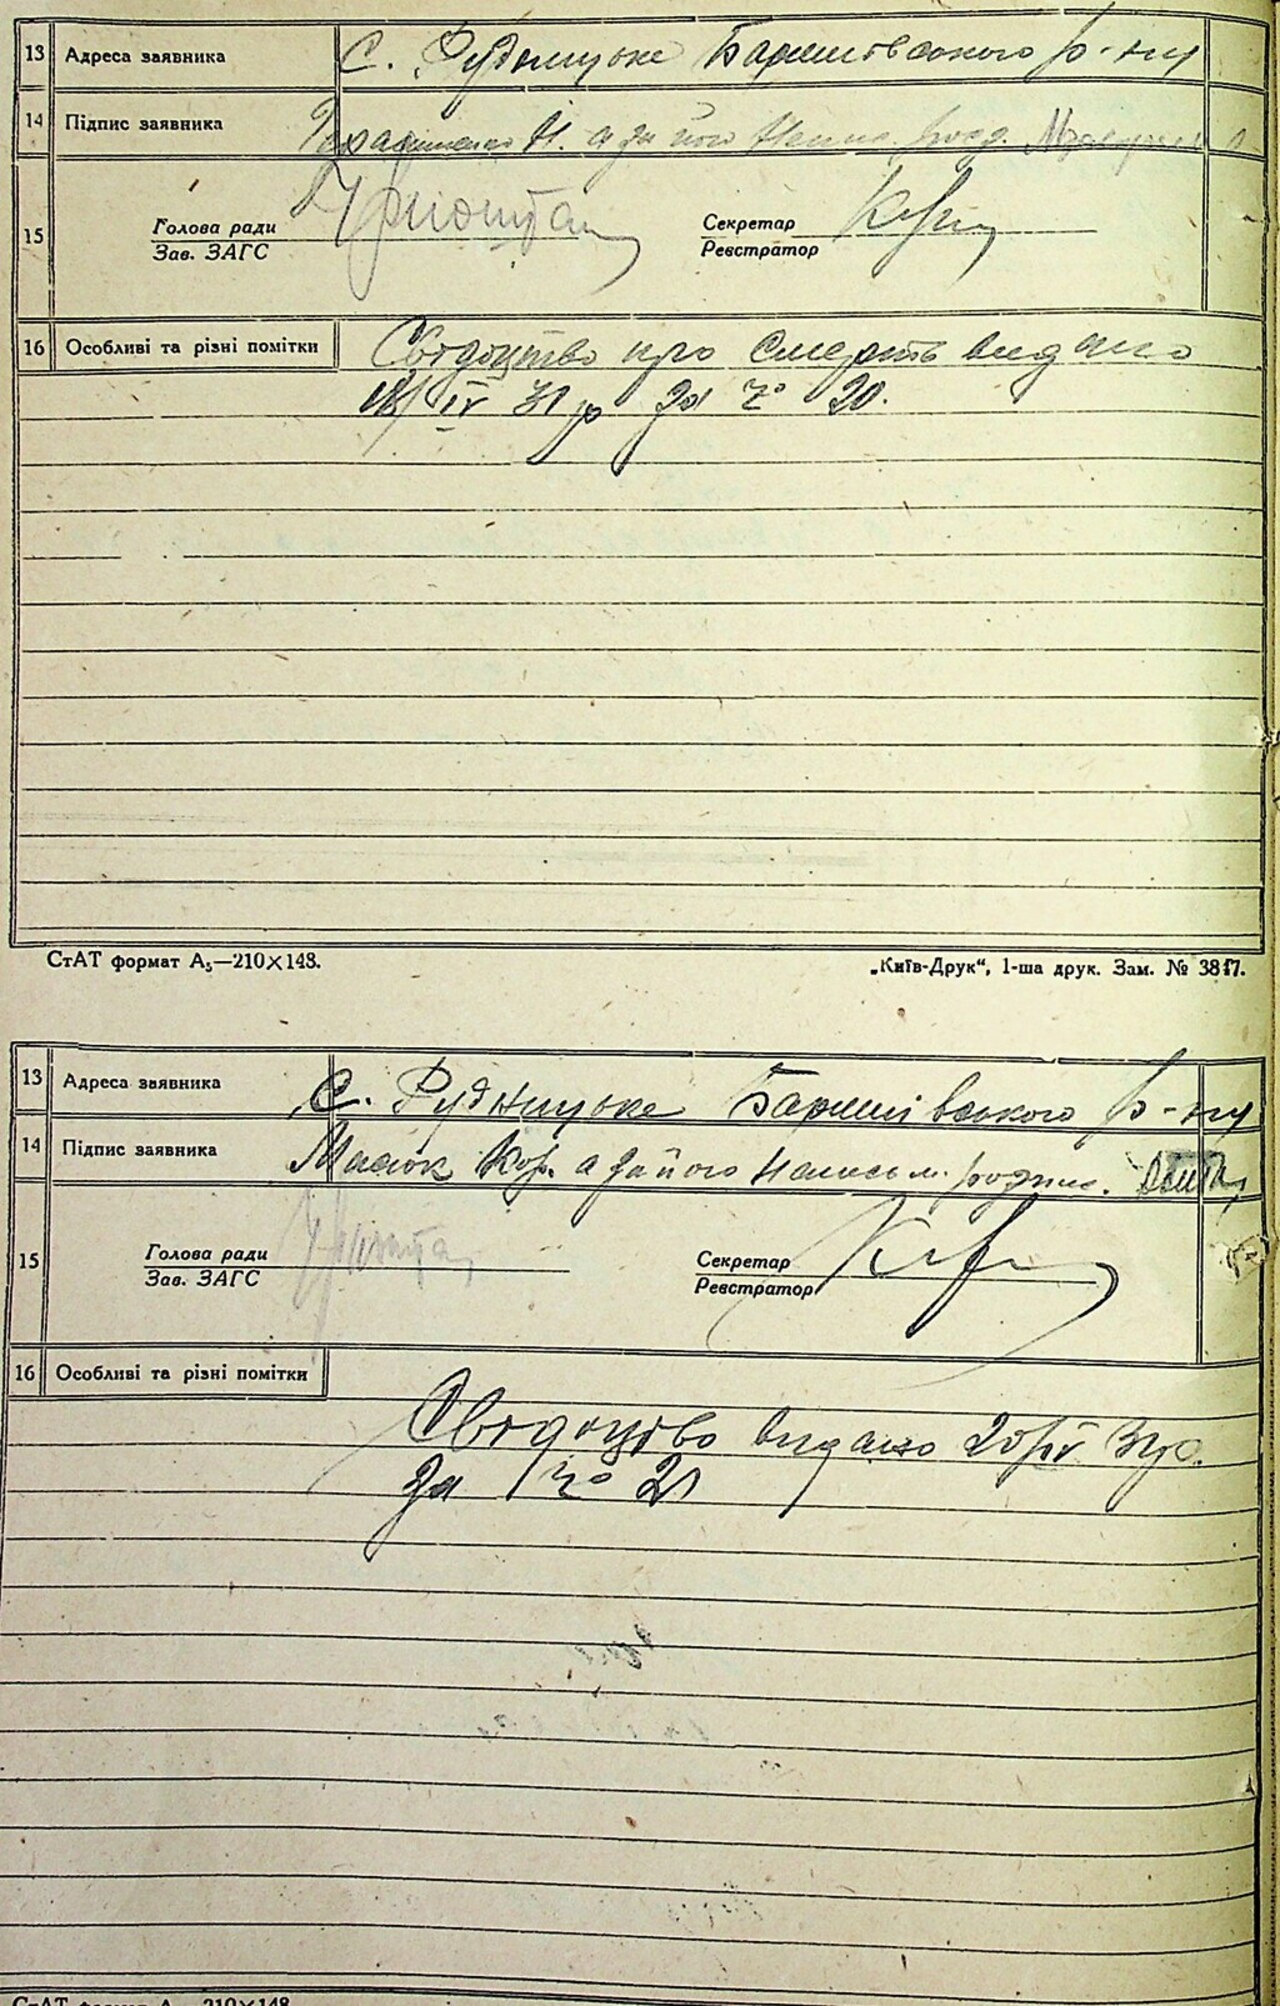 13 Адреса заявника С. Рудницьке Баришівського р-ну
14 Підпис заявника Н. а за його
15 Голова ради
Зав. ЗАГС
Секретар
Реєстратор
16 Особливі та різні помітки Свідоцтво про смерть видано
IV 31 р за № 20.
СтАТ формат А₅—210×148.
„Київ-Друк“, 1-ша друк. Зам. № 3817.
13 Адреса заявника С. Рудницьке Баришівського р-ну
14 Підпис заявника Масюк Кор. а за його
15 Голова ради
Зав. ЗАГС
Секретар
Реєстратор
16 Особливі та різні помітки
Свідоцтво видано 20/IV 31 р.
за № 21
СтАТ формат А 210×148